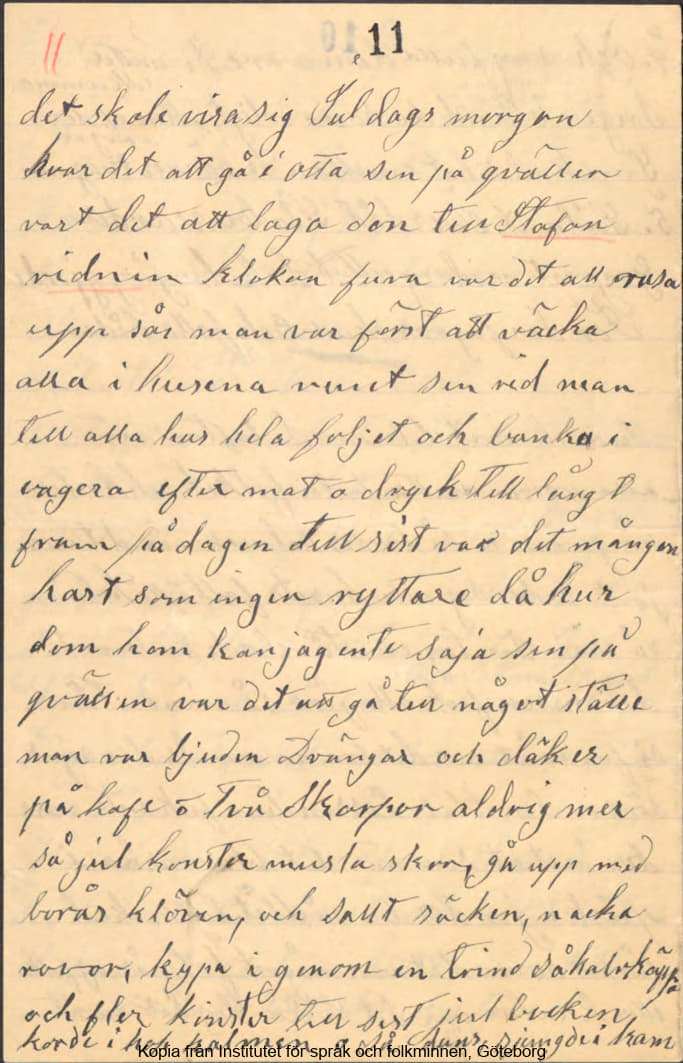 11
11
det skole visa sig Jul dags morgon
kvar det att gå i otta sen på qvällen
vart det att laga don till Stafan
ridnin klokan fura var det att rusa
upp sås man var först att väcka
alla i husena runt sen rid man
till alla hus hela foljet och banka i
vagera efter mat o dryck till långt
fram på dagen till sist var det mången
hast som ingen ryttare då hur
dom hom kan jag ente säja sen på
qvällen var det att gå till någvt ställe
man var bjuden Drängar och däker
på kafe o Två Skorpor aldrig mer
så jul konster musla skor, gå upp med
borås klöven, och sallt säcken, nacka
rovor, kypa i genom en trind såhalvkäpp
och fler konster till sist jul bocken
korde i hop halmen o så dans siungde i kam
Kopia från Institutet för språk och folkminnen, Göteborg